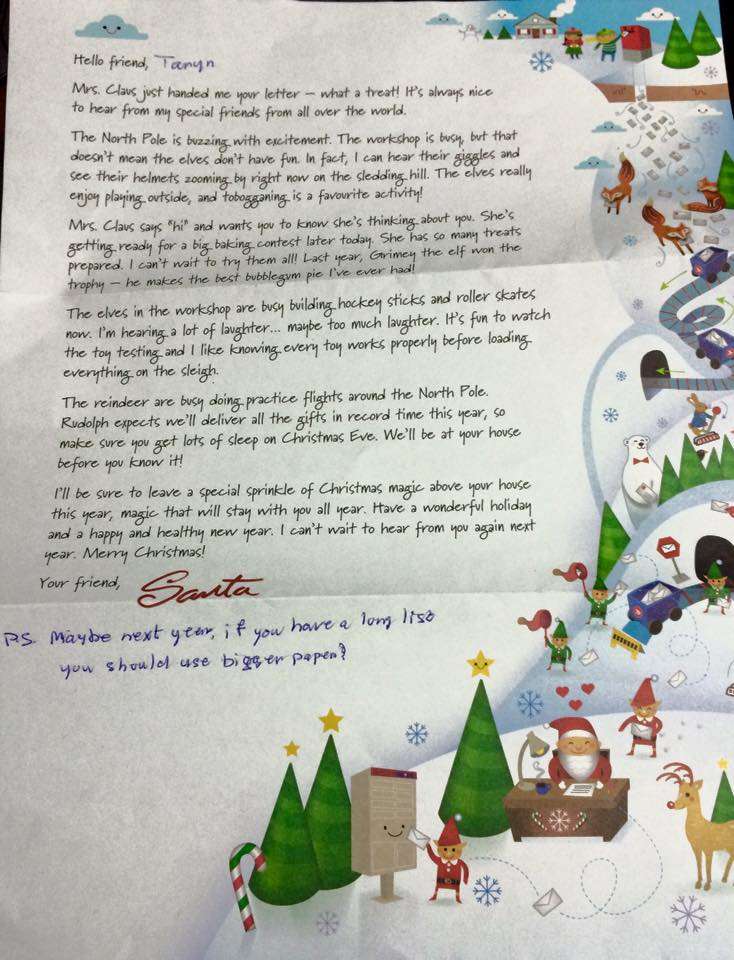 Hello friend, Taryn
Mrs. Claus just handed me your letter – what a treat! It's always nice
to hear from my special friends from all over the world.
The North Pole is buzzing with excitement. The workshop is busy, but that
doesn't mean the elves don't have fun. In fact, I can hear their giggles and
see their helmets zooming by right now on the sledding hill. The elves really
enjoy playing outside, and tobogganing is a favourite activity!
Mrs. Claus says "hi" and wants you to know she's thinking about you. She's
getting ready for a big baking contest later today. She has so many treats
prepared. I can't wait to try them all! Last year, Grimey the elf won the
trophy – he makes the best bubblegum pie I've ever had!
The elves in the workshop are busy building hockey sticks and roller skates
now. I'm hearing a lot of laughter... maybe too much laughter. It's fun to watch
the toy testing and I like knowing every toy works properly before loading
everything on the sleigh.
The reindeer are busy doing practice flights around the North Pole.
Rudolph expects we'll deliver all the gifts in record time this year, so
make sure you get lots of sleep on Christmas Eve. We'll be at your house
before you know it!
I'll be sure to leave a special sprinkle of Christmas magic above your house
this year, magic that will stay with you all year. Have a wonderful holiday
and a happy and healthy new year. I can't wait to hear from you again next
year. Merry Christmas!
Your friend, Santa
P.S. Maybe next year, if you have a long list
you should use bigger paper?